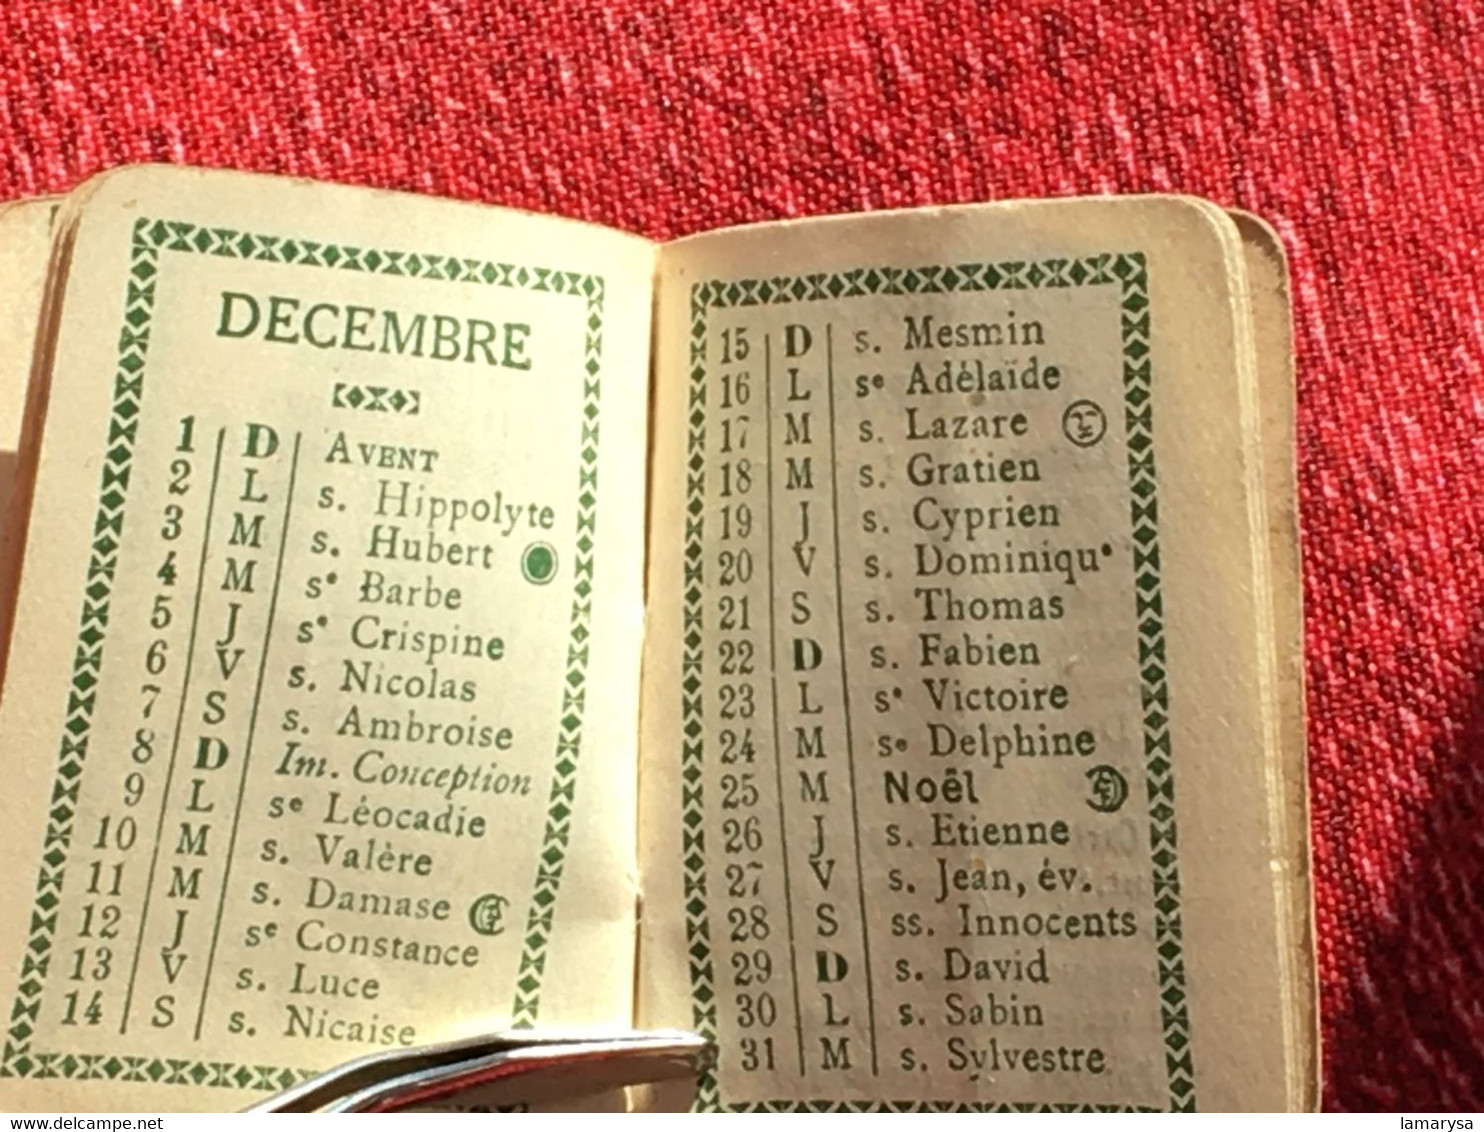 DECEMBRE
1 D AVENT
2 L s. Hippolyte
3 M s. Hubert
4 M sᵉ Barbe
5 J sᵉ Crispine
6 V s. Nicolas
7 S s. Ambroise
8 D Im. Conception
9 L sᵉ Léocadie
10 M s. Valère
11 M s. Damase
12 J sᵉ Constance
13 V s. Luce
14 S s. Nicaise
15 D s. Mesmin
16 L sᵉ Adélaïde
17 M s. Lazare
18 M s. Gratien
19 J s. Cyprien
20 V s. Dominiquᵉ
21 S s. Thomas
22 D s. Fabien
23 L sᵉ Victoire
24 M sᵉ Delphine
25 M Noël
26 J s. Etienne
27 V s. Jean, év.
28 S ss. Innocents
29 D s. David
30 L s. Sabin
31 M s. Sylvestre
delcampe.net
lamarysa